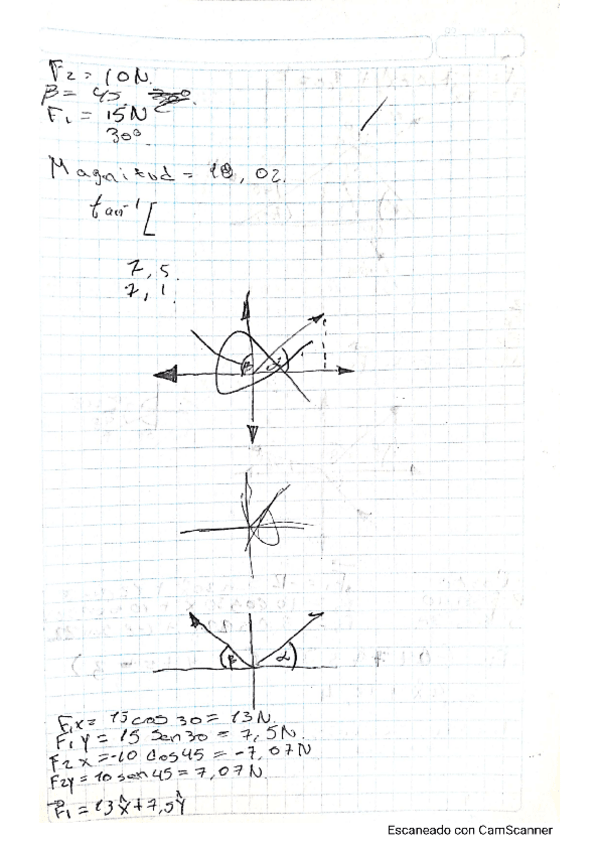 F2 = 10N.
β = 45
F1 = 15N
30°
Magnitud = 18,02.
tan⁻¹ [
7,5
7,1
β α
β α
F1x = 15 cos 30 = 13N.
F1y = 15 sen 30 = 7,5N
F2x = -10 cos 45 = -7,07N
F2y = 10 sen 45 = 7,07N
F1 = 13x̂ + 7,5ŷ
Escaneado con CamScanner